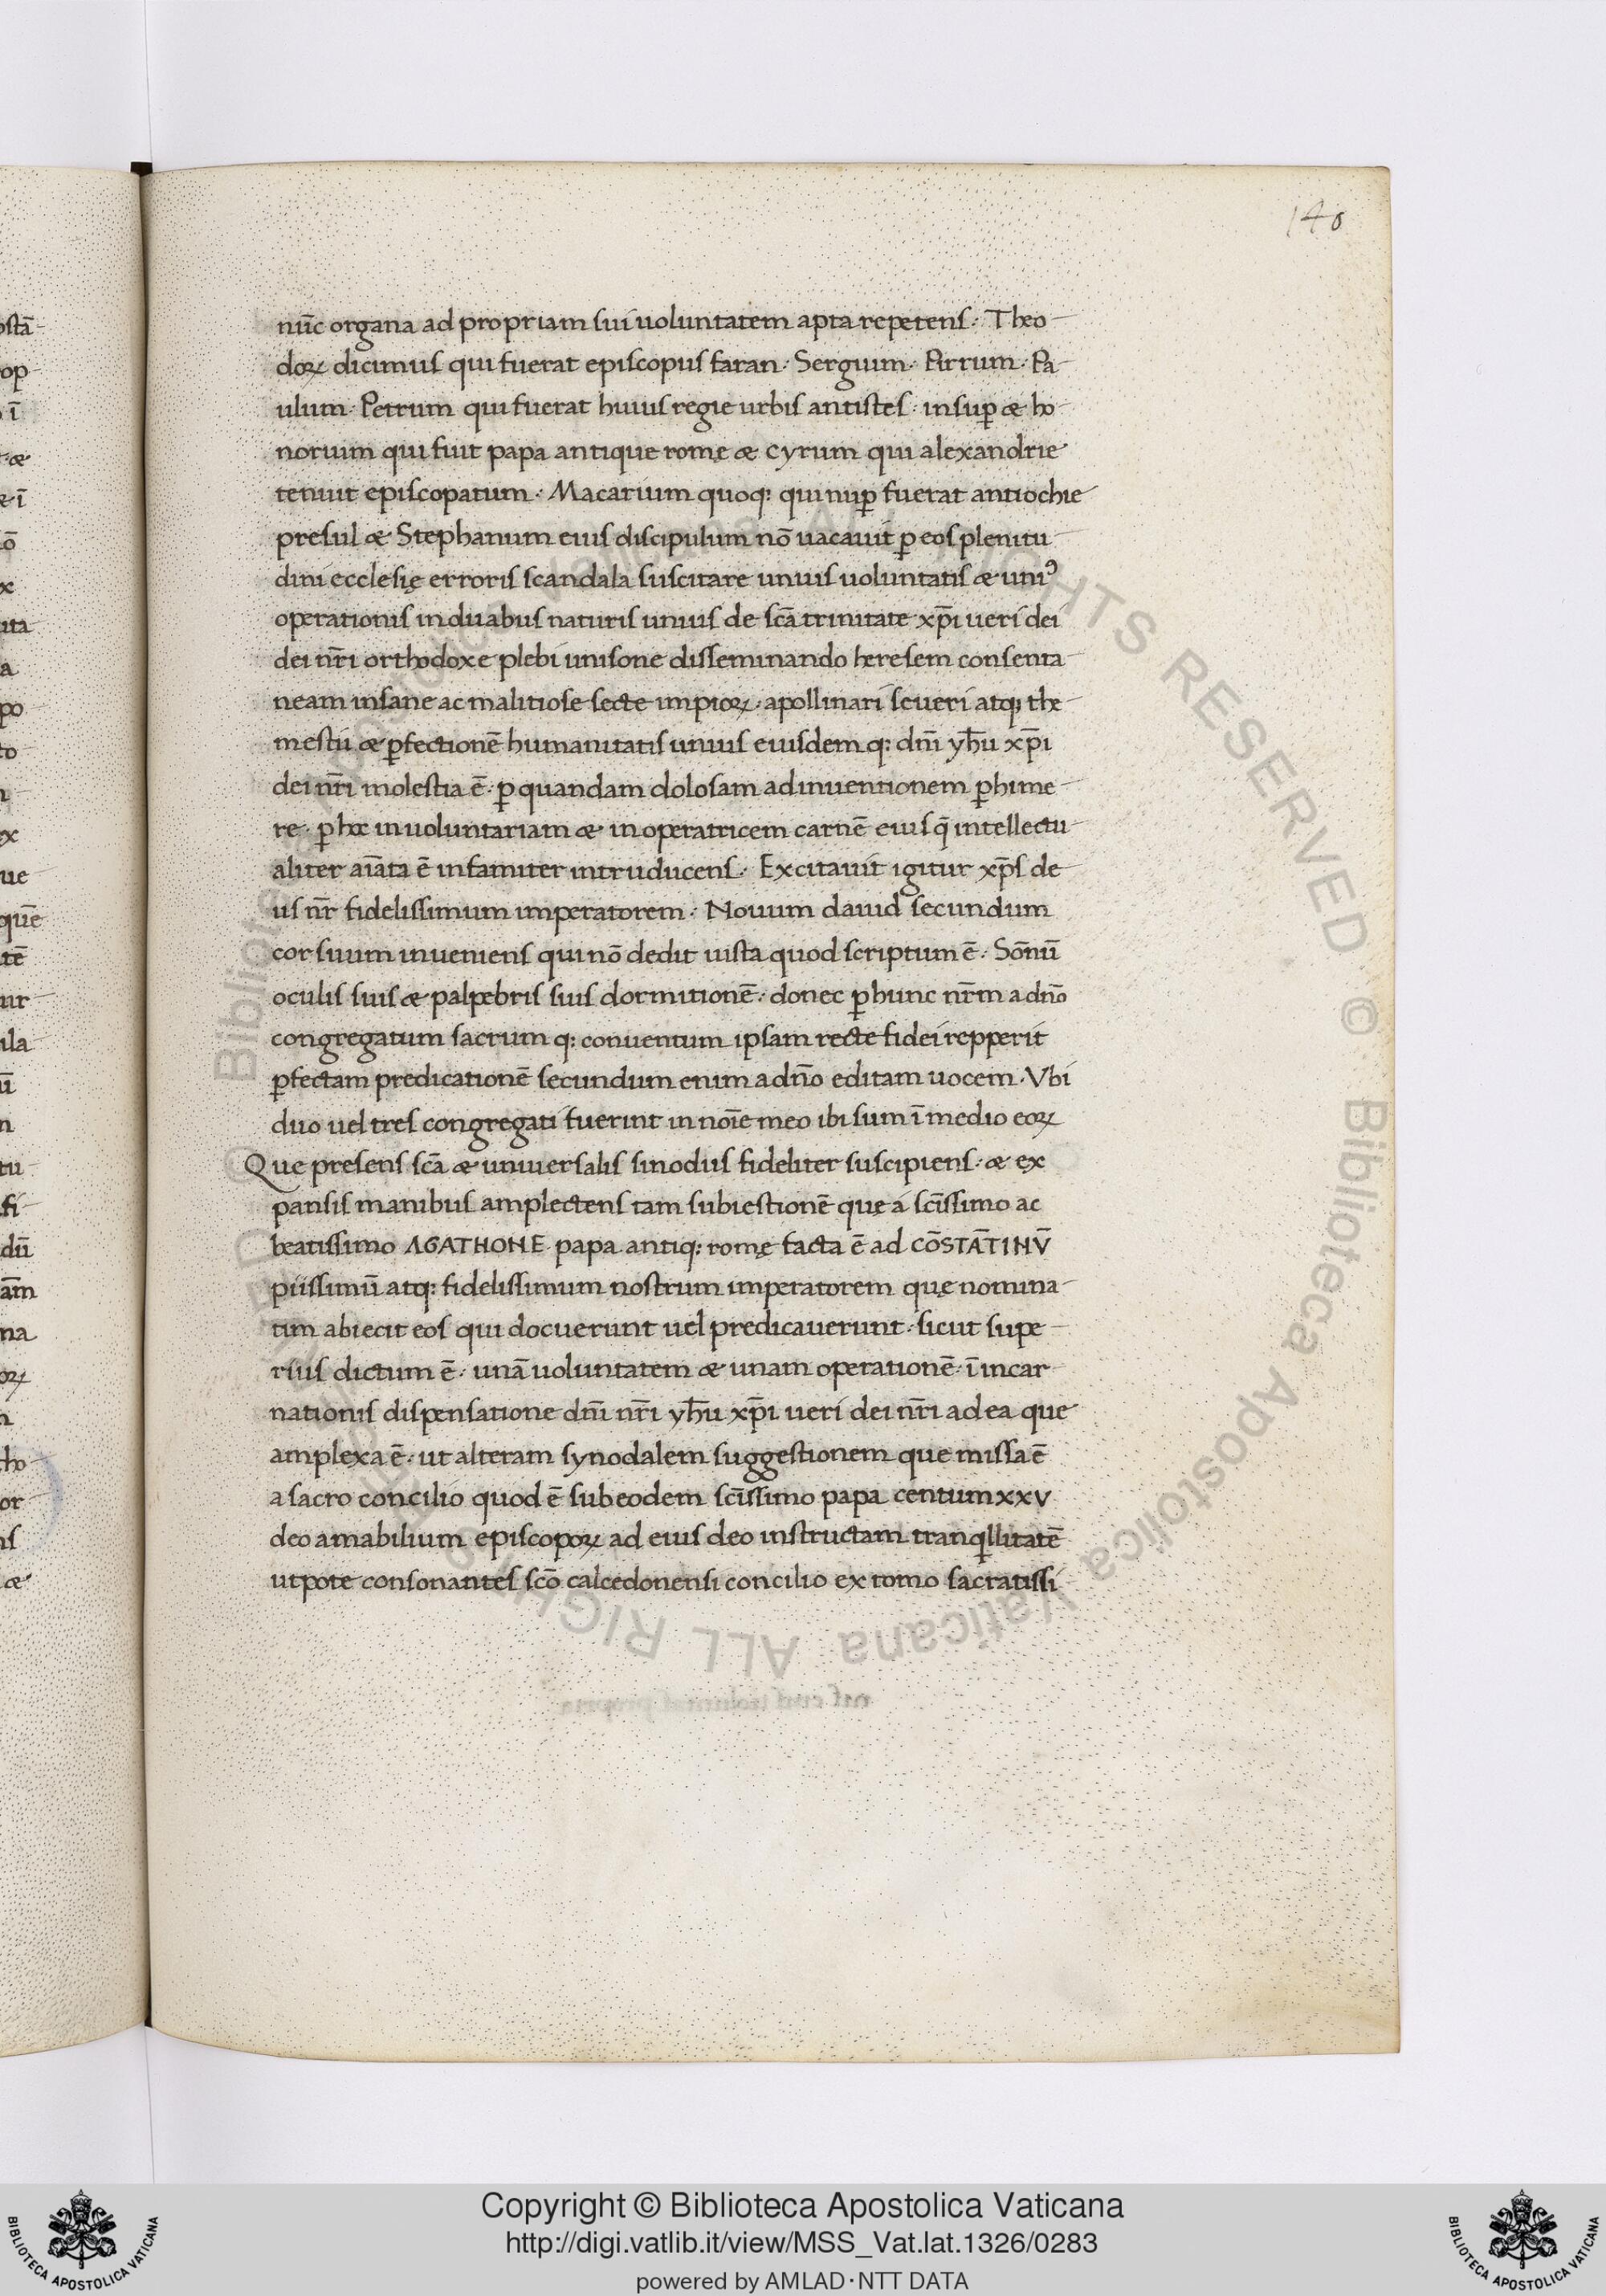 140
nūc organa ad propriam sui uoluntatem apta repetens. Theo
doꝝ dicimus qui fuerat episcopus faran. Sergium. Pirrum. Pa
ulum. Petrum qui fuerat huius regie urbis antistes. insuꝑ & ho
norium qui fuit papa antique romę & cyrum qui alexandrie
tenuit episcopatum. Macarium quoq: qui nuꝑ fuerat antiochie
presul & Stephanum eius discipulum nō uacauit ꝑ eos plenitu
dini ecclesię erroris scandala suscitare unius uoluntatis & uniꝰ
operationis in duabus naturis unius de sc̄a trinitate xp̄i ueri dei
dei nr̄i orthodoxe plebi unisone disseminando heresem consenta
neam insane ac malitiose secte impioꝝ. apollinari seueri atq; the
mestii & ꝑfectionē humanitatis unius eiusdem q: dn̄i yh̄u xp̄i
dei nr̄i molestia ē. ꝑ quandam dolosam adinuentionem ꝑhime
re. ꝑ hoc inuoluntariam & inoperatricem carnē eius q̄ intellectu
aliter aīata ē infamiter intruducens. Excitauit igitur xp̄s de
us nr̄ fidelissimum imperatorem. Nouum dauid secundum
cor suum inueniens qui nō dedit iusta quod scriptum ē. Sōnū
oculis suis & palpebris suis dormitionē. donec ꝑ hunc nr̄m a dn̄o
congregatum sacrum q: conuentum ipsam recte fidei repperit
ꝑfectam predicationē secundum enim a dn̄o editam uocem. Vbi
duo uel tres congregati fuerint in noīe meo ibi sum ī medio eoꝝ
Que presens sc̄a & uniuersalis sinodus fideliter suscipiens. & ex
pansis manibus amplectens tam subiestionē quę a sc̄issimo ac
beatissimo AGATHONE papa antiq: romę facta ē ad CŌSTĀTINV̄
piissimū atq: fidelissimum nostrum imperatorem quę nomina
tim abiecit eos qui docuerunt uel predicauerunt. sicut supe
rius dictum ē. unā uoluntatem & unam operationē. ī incar
nationis dispensatione dn̄i nr̄i yh̄u xp̄i ueri dei nr̄i ad ea que
amplexa ē. ut alteram synodalem suggestionem que missa ē
a sacro concilio quod ē sub eodem sc̄issimo papa centum xxv
deo amabilium episcopoꝝ ad eius deo instructam tranqllitatē
utpote consonantes sc̄o calcedonensi concilio ex tomo sacratissi
Copyright © Biblioteca Apostolica Vaticana
http://digi.vatlib.it/view/MSS_Vat.lat.1326/0283
powered by AMLAD·NTT DATA